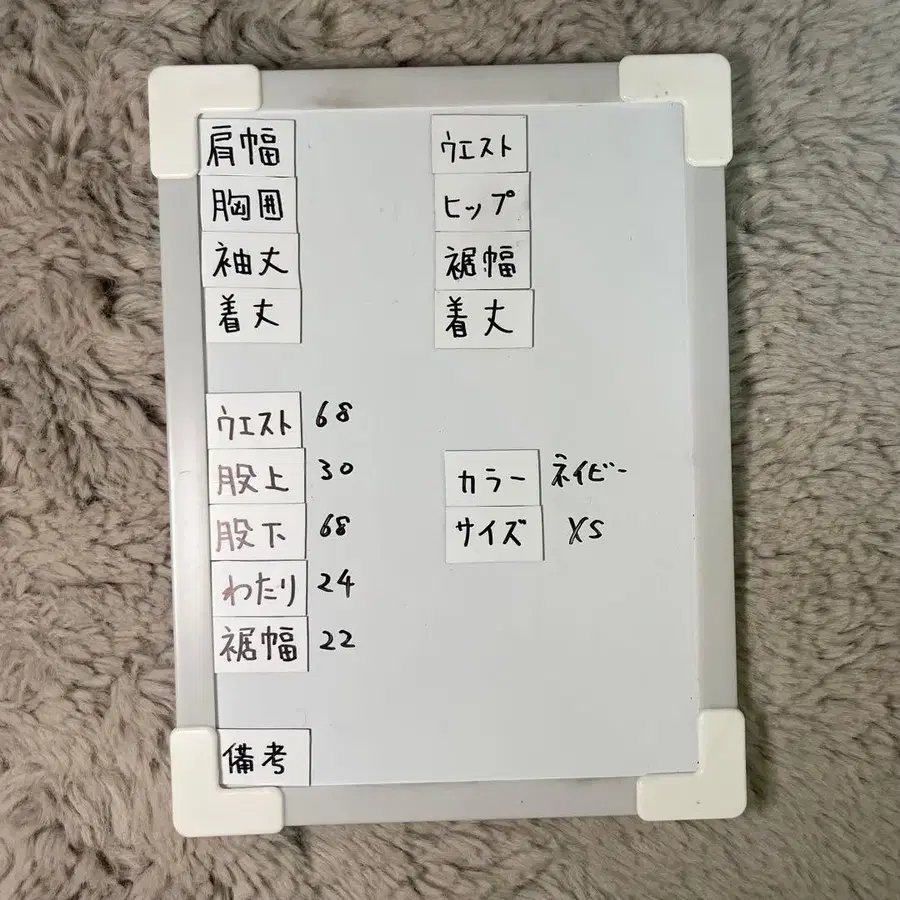 肩幅
胸囲
袖丈
着丈
ウエスト
ヒップ
裾幅
着丈
ウエスト 68
股上 30
股下 68
わたり 24
裾幅 22
カラー ネイビー
サイズ XS
備考